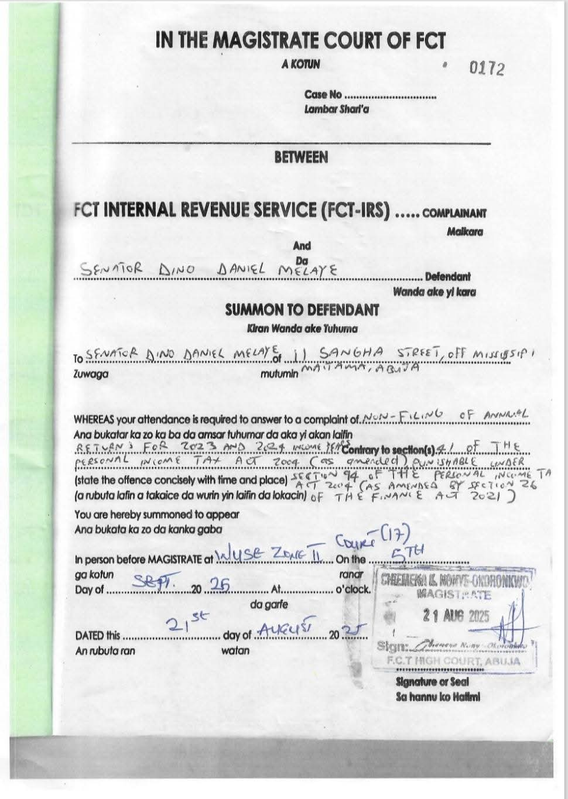 IN THE MAGISTRATE COURT OF FCT
A KOTUN
0172
Case No ..............................
Lambar Shari'a
BETWEEN
FCT INTERNAL REVENUE SERVICE (FCT-IRS) ..... COMPLAINANT
Maikara
And
Da
SENATOR DINO DANIEL MELAYE
Defendant
Wanda ake yi kara
SUMMON TO DEFENDANT
Kiran Wanda ake Tuhuma
To SENATOR DINO DANIEL MELAYE of 11 SANGHA STREET, OFF MISSISSIPI
Zuwaga mutumin MAITAMA, ABUJA
WHEREAS your attendance is required to answer to a complaint of NON-FILING OF ANNUAL
Ana bukatar ka zo ka ba da amsar tuhumar da aka yi akan laifin
RETURNS FOR 2023 AND 2024 INCOME YEARS Contrary to section(s) 41 OF THE
PERSONAL INCOME TAX ACT 2004 (as amended) PUNISHABLE UNDER
(state the offence concisely with time and place) SECTION 94 OF THE PERSONAL INCOME TA
ACT 2004 (AS AMENDED BY SECTION 26
(a rubuta laifin a takaice da wurin yin laifin da lokacin) OF THE FINANCE ACT 2021)
You are hereby summoned to appear
Ana bukata ka zo da kanka gaba
In person before MAGISTRATE at WUSE ZONE II COURT (17) On the 5TH
ga kotun ranar
Day of SEPT. 20 26 At .......... o'clock.
da garfe
DATED this 21st day of AUGUST 2025
An rubuta ran watan
CHIEMENA N. NONYE-OKORONKWO
MAGISTRATE
21 AUG 2025
Sign:
F.C.T HIGH COURT, ABUJA
Signature or Seal
Sa hannu ko Hatimi